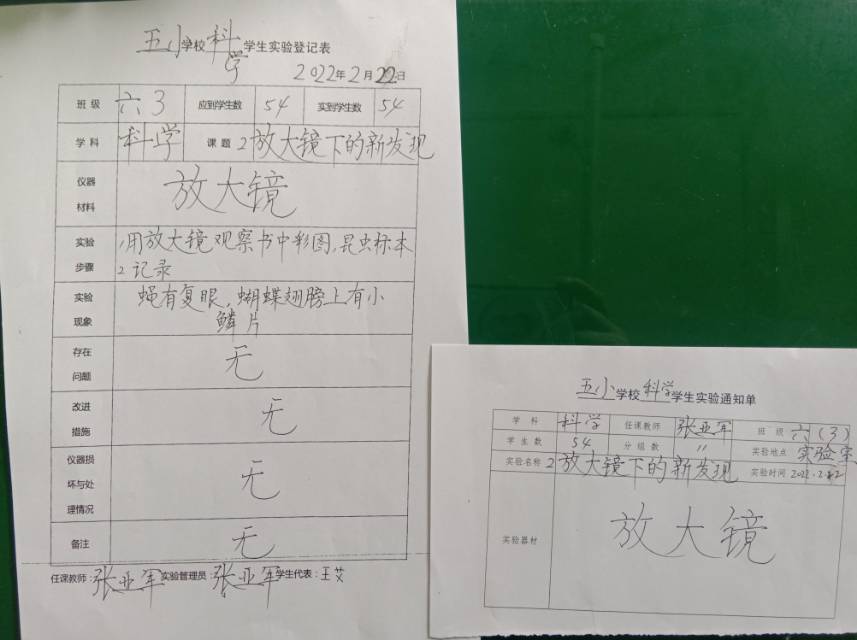 五小学校科学学生实验登记表
2022年2月22日
班级 六3 应到学生数 54 实到学生数 54
学科 科学 课题 2放大镜下的新发现
仪器材料 放大镜
实验步骤 1,用放大镜观察书中彩图,昆虫标本
2记录
实验现象 蝇有复眼,蝴蝶翅膀上有小
鳞片
存在问题 无
改进措施 无
仪器损坏与处理情况 无
备注 无
任课教师:张亚军 实验管理员:张亚军 学生代表:王艾
五小学校科学学生实验通知单
学科 科学 任课教师 张亚军 班级 六(3)
学生数 54 分组数 〃 实验地点 实验室
实验名称 2放大镜下的新发现 实验时间 2022.2.22
实验器材 放大镜